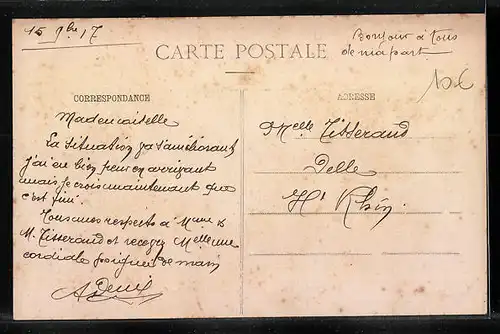 15 9bre 17
Bonjour à tous
de ma part
CARTE POSTALE
CORRESPONDANCE
ADRESSE
Mademoiselle
La situation va s'améliorant
j'ai eu bien peur en arrivant
mais je crois maintenant que
c'est fini.
Tous mes respects à Mme &
M. Tisserand et recevez Melle une
cordiale poignée de main
Melle Tisserand
Delle
Ht Rhin